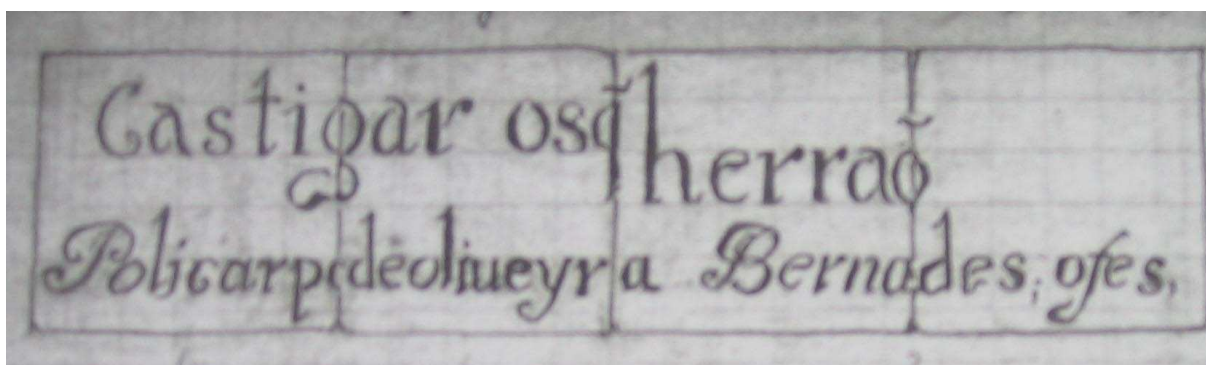 Castigar osq̃ herraõ
Policarpo deoliueyra Bernades, ofes,